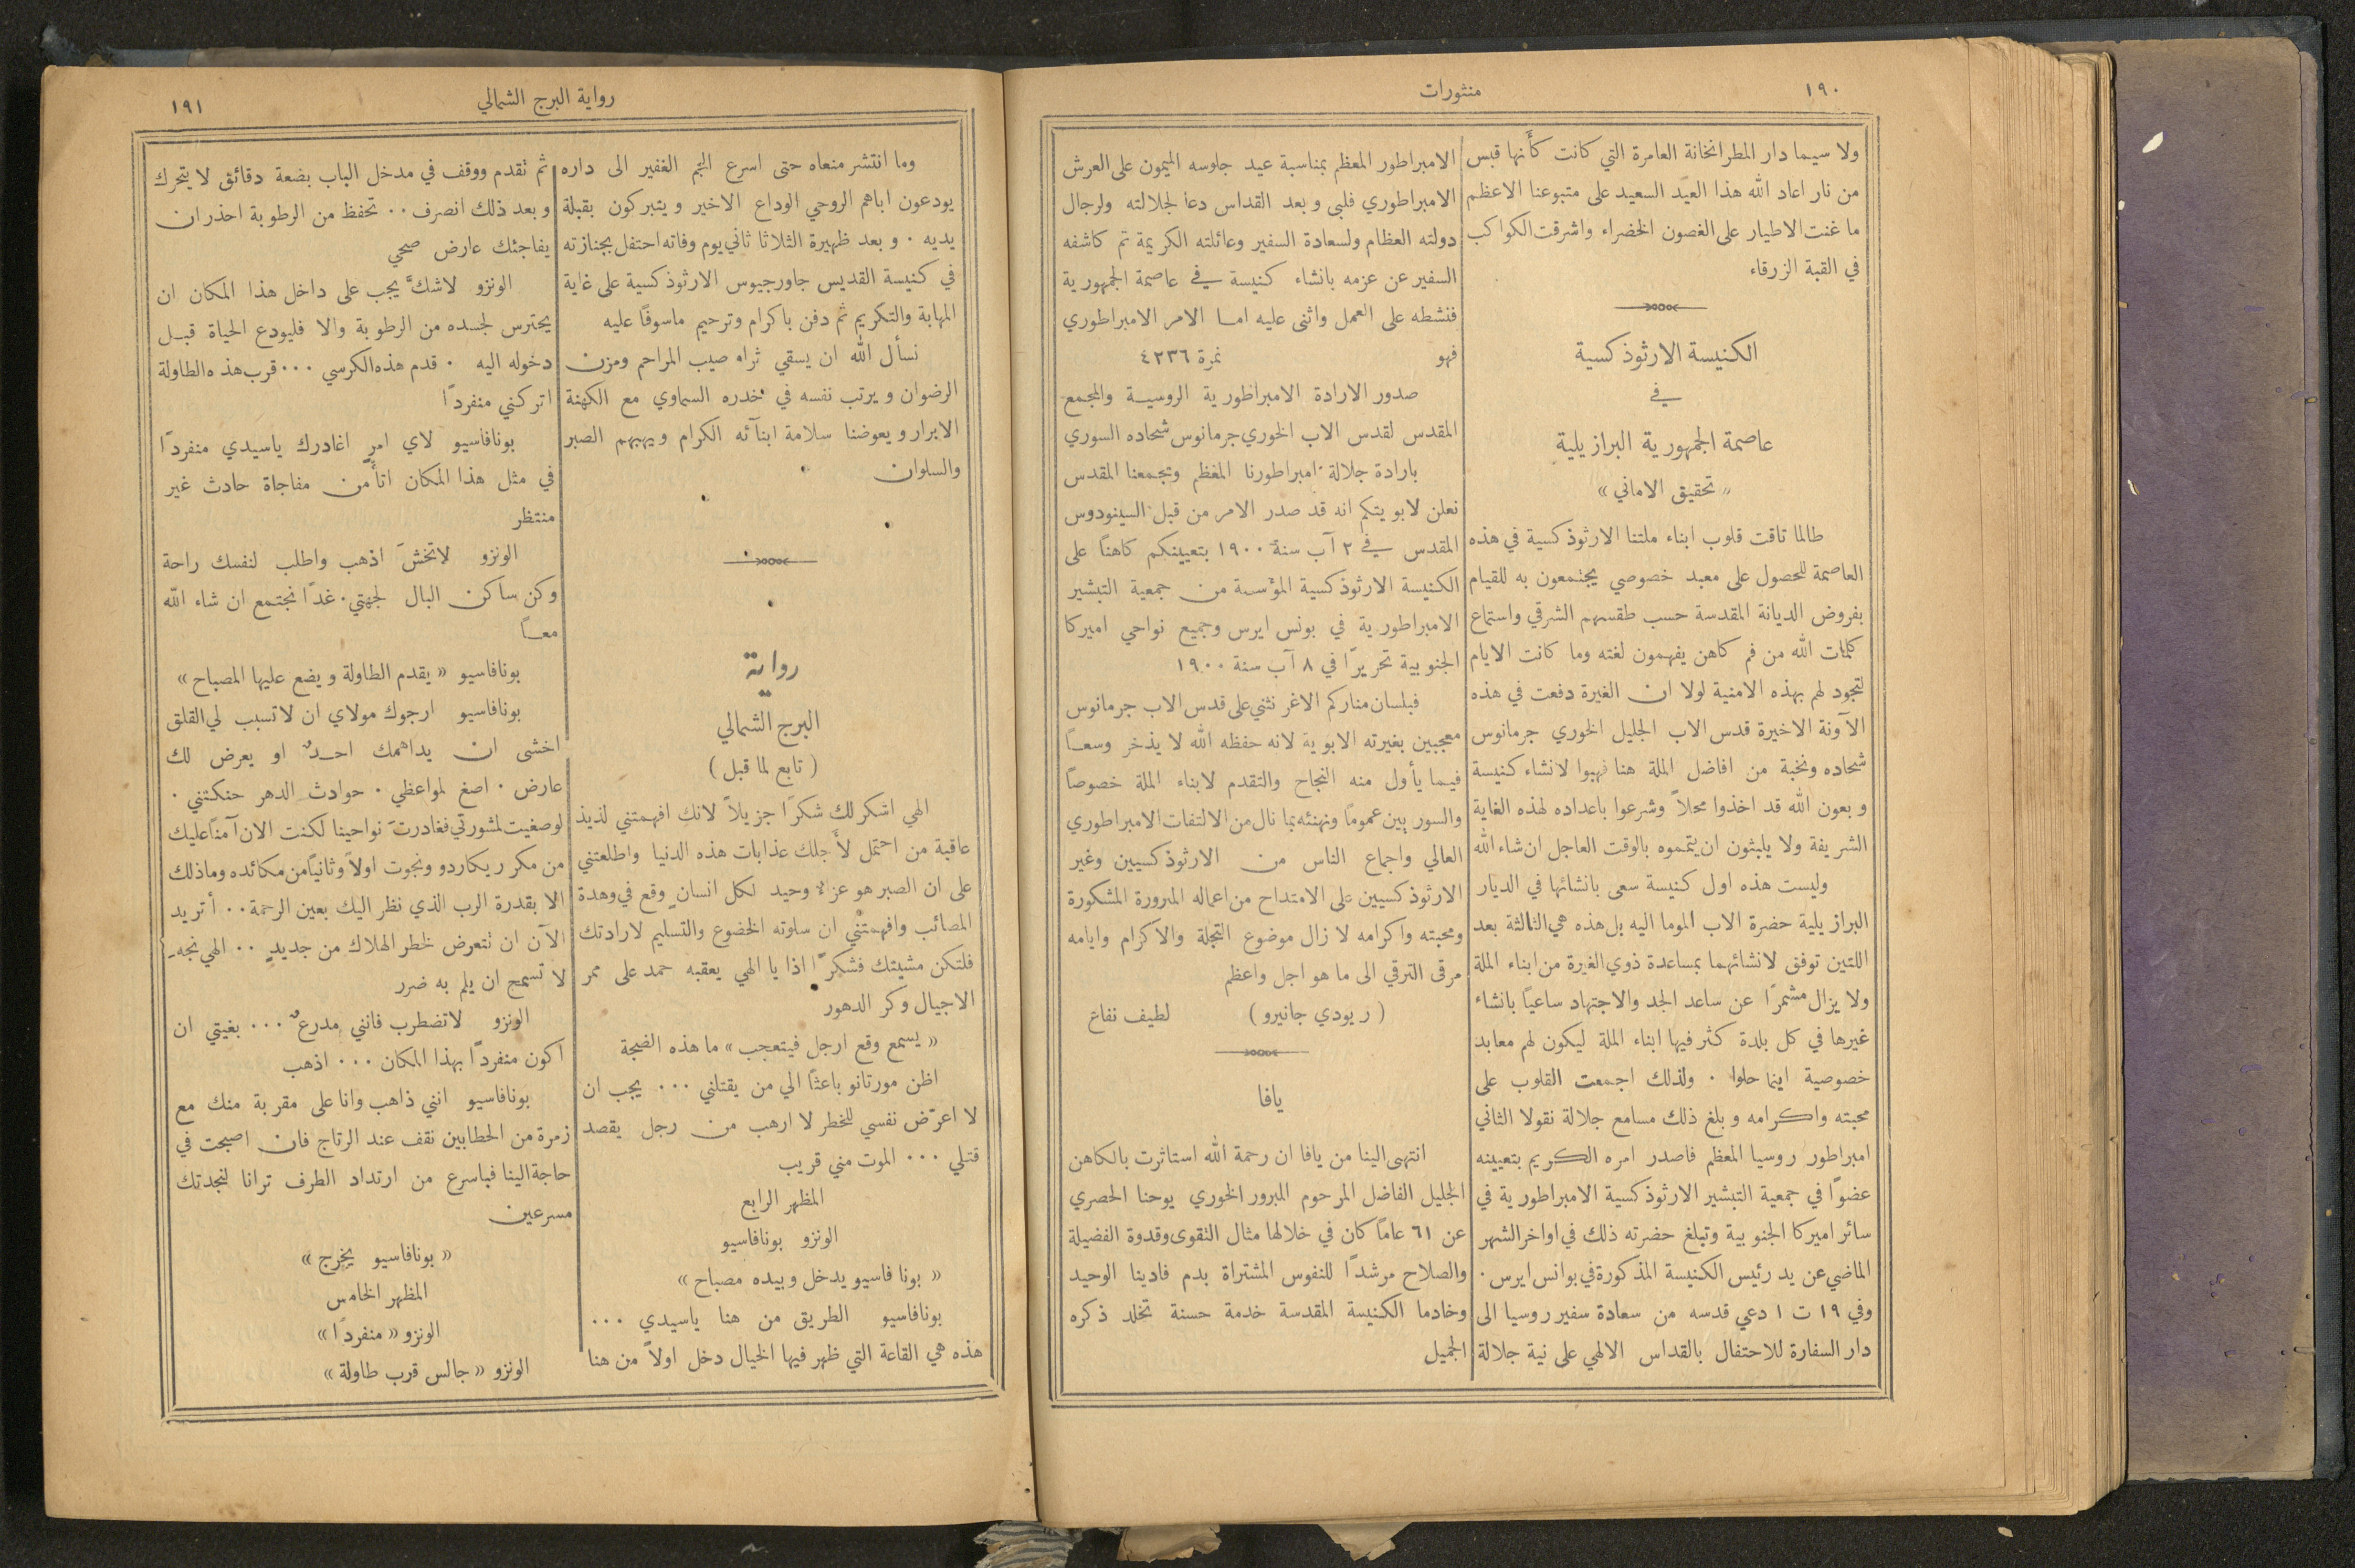 ١٩٠
منثورات
ولا سيما دار المطرانخانة العامرة التي كانت كأنها قبس
من نار اعاد الله هذا العيد السعيد على متبوعنا الاعظم
ما غنت الاطيار على الغصون الخضراء واشرقت الكواكب
في القبة الزرقاء
الكنيسة الارثوذكسية
في
عاصمة الجمهورية البرازيلية
« تحقيق الاماني »
طالما تاقت قلوب ابناء ملتنا الارثوذكسية في هذه
العاصمة للحصول على معبد خصوصي يجتمعون به للقيام
بفروض الديانة المقدسة حسب طقسهم الشرقي واستماع
كلمات الله من فم كاهن يفهمون لغته وما كانت الايام
لتجود لهم بهذه الامنية لولا ان الغيرة دفعت في هذه
الآونة الاخيرة قدس الاب الجليل الخوري جرمانوس
شحاده ونخبة من افاضل الملة هنا فهبوا لانشاء كنيسة
وبعون الله قد اخذوا محلاً وشرعوا باعداده لهذه الغاية
الشريفة ولا يلبثون ان يتمموه بالوقت العاجل ان شاء الله
وليست هذه اول كنيسة سعى بانشائها في الديار
البرازيلية حضرة الاب الموما اليه بل هذه هي الثالثة بعد
اللتين توفق لانشائهما بمساعدة ذوي الغيرة من ابناء الملة
ولا يزال مشمرًا عن ساعد الجد والاجتهاد ساعيًا بانشاء
غيرها في كل بلدة كثر فيها ابناء الملة ليكون لهم معابد
خصوصية اينما حلوا . ولذلك اجمعت القلوب على
محبته واكرامه وبلغ ذلك مسامع جلالة نقولا الثاني
امبراطور روسيا المعظم فاصدر امره الكريم بتعيينه
عضوًا في جمعية التبشير الارثوذكسية الامبراطورية في
سائر اميركا الجنوبية وتبلغ حضرته ذلك في اواخر الشهر
الماضي عن يد رئيس الكنيسة المذكورة في بوانس ايرس .
وفي ١٩ ت ١ دعي قدسه من سعادة سفير روسيا الى
دار السفارة للاحتفال بالقداس الالهي على نية جلالة
الامبراطور المعظم بمناسبة عيد جلوسه الميمون على العرش
الامبراطوري فلبى وبعد القداس دعا لجلالته ولرجال
دولته العظام ولسعادة السفير وعائلته الكريمة ثم كاشفه
السفير عن عزمه بانشاء كنيسة في عاصمة الجمهورية
فنشطه على العمل واثنى عليه اما الامر الامبراطوري
فهو نمرة ٤٢٣٦
صدور الارادة الامبراطورية الروسية والمجمع
المقدس لقدس الاب الخوري جرمانوس شحاده السوري
بارادة جلالة امبراطورنا المعظم ومجمعنا المقدس
نعلن لابويتكم انه قد صدر الامر من قبل السينودوس
المقدس في ٢ آب سنة ١٩٠٠ بتعيينكم كاهنًا على
الكنيسة الارثوذكسية المؤسسة من جمعية التبشير
الامبراطورية في بونس ايرس وجميع نواحي اميركا
الجنوبية تحريرًا في ٨ آب سنة ١٩٠٠
فبلسان مناركم الاغر نثني على قدس الاب جرمانوس
معجبين بغيرته الابوية لانه حفظه الله لا يذخر وسعًا
فيما يأول منه النجاح والتقدم لابناء الملة خصوصًا
والسوريين عمومًا ونهنئه بما نال من الالتفات الامبراطوري
العالي واجماع الناس من الارثوذكسيين وغير
الارثوذكسيين على الامتداح من اعماله المبرورة المشكورة
ومحبته واكرامه لا زال موضوع التجلة والاكرام وايامه
مرقى الترقي الى ما هو اجل واعظم
( ريودي جانيرو ) لطيف نفاع
يافا
انتهى الينا من يافا ان رحمة الله استاثرت بالكاهن
الجليل الفاضل المرحوم المبرور الخوري يوحنا الحصري
عن ٦١ عامًا كان في خلالها مثال التقوى وقدوة الفضيلة
والصلاح مرشدًا للنفوس المشتراة بدم فادينا الوحيد
وخادما الكنيسة المقدسة خدمة حسنة تخلد ذكره
الجميل
رواية البرج الشمالي
١٩١
وما انتشر منعاه حتى اسرع الجم الغفير الى داره
يودعون اباهم الروحي الوداع الاخير ويتبركون بقبلة
يديه . وبعد ظهيرة الثلاثا ثاني يوم وفاته احتفل بجنازته
في كنيسة القديس جاورجيوس الارثوذكسية على غاية
المهابة والتكريم ثم دفن باكرام وترحيم ماسوفًا عليه
نسأل الله ان يسقي ثراه صيب المراحم ومزن
الرضوان ويرتب نفسه في خدره السماوي مع الكهنة
الابرار ويعوضنا سلامة ابنآئه الكرام ويهبهم الصبر
والسلوان
رواية
البرج الشمالي
( تابع لما قبل )
الهي اشكرلك شكرًا جزيلاً لانك افهمتني لذيذ
عاقبة من احتمل لأجلك عذابات هذه الدنيا واطلعتني
على ان الصبر هو عزاء وحيد لكل انسان وقع في وهدة
المصائب وافهمتني ان سلوته الخضوع والتسليم لارادتك
فلتكن مشيئتك فشكرًا اذا يا الهي يعقبه حمد على ممر
الاجيال وكر الدهور
« يسمع وقع ارجل فيتعجب » ما هذه الضجة
اظن مورتانو باعثًا الي من يقتلني ... يجب ان
لا اعرّض نفسي للخطر لا ارهب من رجل يقصد
قتلي ... الموت مني قريب
المظهر الرابع
الونزو بونافاسيو
« بونا فاسيو يدخل وبيده مصباح »
بونافاسيو الطريق من هنا ياسيدي ...
هذه هي القاعة التي ظهر فيها الخيال دخل اولاً من هنا
ثم تقدم ووقف في مدخل الباب بضعة دقائق لا يتحرك
وبعد ذلك انصرف .. تحفظ من الرطوبة احذر ان
يفاجئك عارض صحي
الونزو لاشكَّ يجب على داخل هذا المكان ان
يحترس لجسده من الرطوبة والا فليودع الحياة قبل
دخوله اليه . قدم هذه الكرسي ... قرب هذه الطاولة
اتركني منفردًا
بونافاسيو لاي امرٍ اغادرك ياسيدي منفردًا
في مثل هذا المكان اتأمن مفاجاة حادث غير
منتظر
الونزو لاتخشَ اذهب واطلب لنفسك راحة
وكن ساكن البال لجهتي. غدًا نجتمع ان شاء الله
معًا
بونافاسيو « يقدم الطاولة ويضع عليها المصباح »
بونافاسيو ارجوك مولاي ان لا تسبب لي القلق
اخشى ان يداهمك احدٌ او يعرض لك
عارض . اصغ لمواعظي . حوادث الدهر حنكتني .
لوصغيت لمشورتي فغادرتَ نواحينا لكنت الان آمنًا عليك
من مكر ريكاردو ونجوت اولاً وثانيًا من مكائده وماذلك
الا بقدرة الرب الذي نظر اليك بعين الرحمة .. أتريد
الآن ان تتعرض لخطر الهلاك من جديدٍ .. الهي نجه
لا تسمح ان يلم به ضرر
الونزو لاتضطرب فانني مدرعٌ ... بغيتي ان
اكون منفردًا بهذا المكان ... اذهب
بونافاسيو انني ذاهب وانا على مقربة منك مع
زمرة من الحطابين نقف عند الرتاج فان اصبحت في
حاجة الينا فباسرع من ارتداد الطرف ترانا لنجدتك
مسرعين
« بونافاسيو يخرج »
المظهر الخامس
الونزو « منفردًا »
الونزو « جالس قرب طاولة »